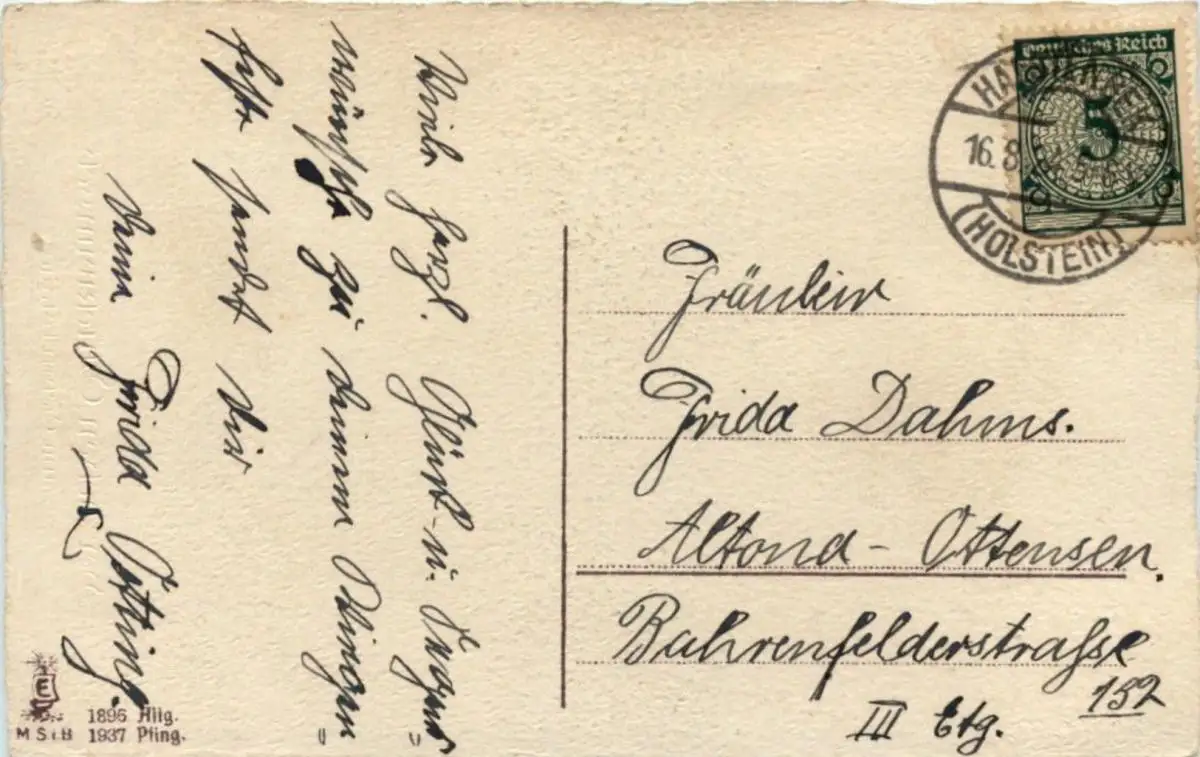 Viele herzl. Glück- u. Segens
wünsche zu deinem Wiegen
feste sendet dir
deine Frida
Fräulein
Frida Dahms.
Altona - Ottensen.
Bahrenfelderstrasse
152
III Etg.
Deutsches Reich
5
16. 8
(HOLSTEIN)
E
1896 Allg.
M S i B 1937 Pfing.